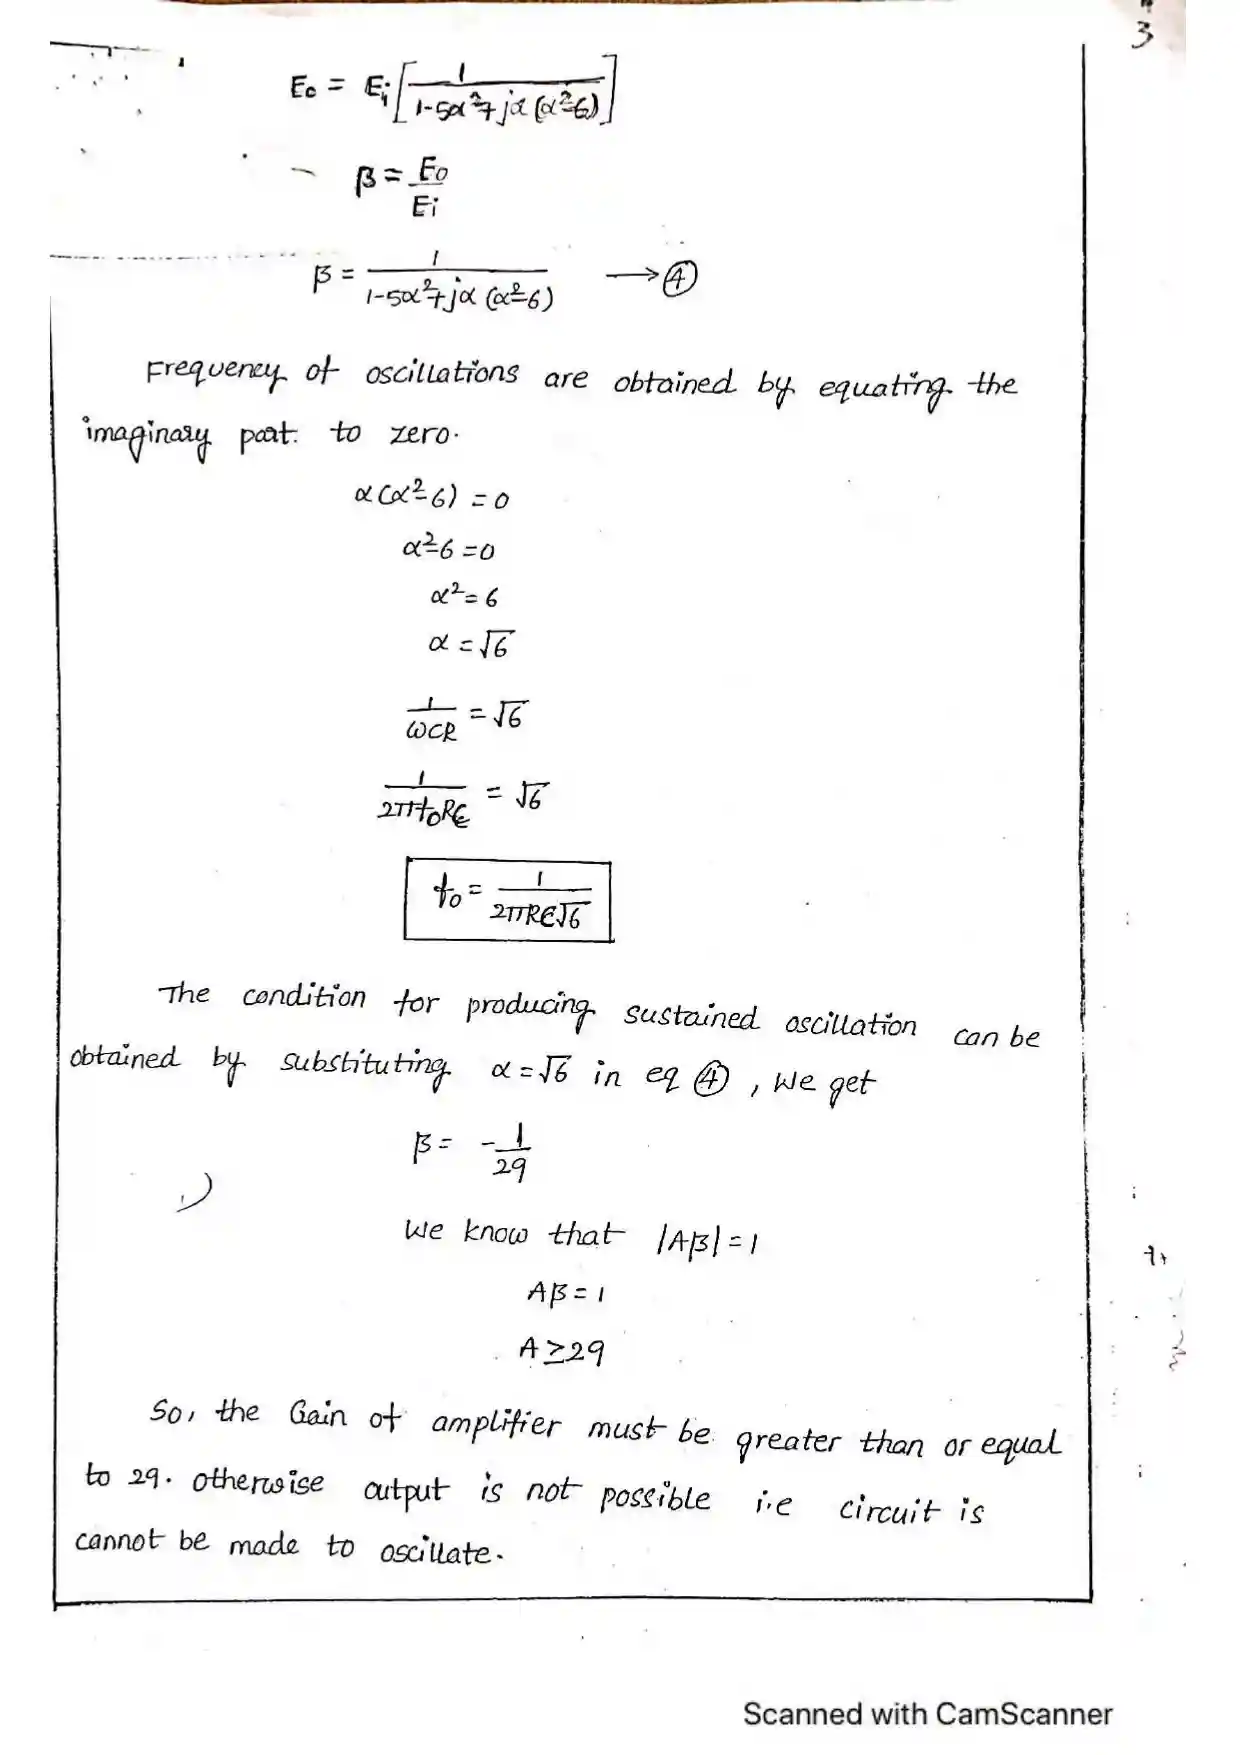 3
Eo = Ei [ 1 / (1-5α²+jα(α²-6)) ]
β = Eo / Ei
β = 1 / (1-5α²+jα(α²-6)) → ④
Frequency of oscillations are obtained by equating the
imaginary part to zero.
α(α²-6) = 0
α²-6 = 0
α² = 6
α = √6
1 / ωCR = √6
1 / 2πfoRC = √6
fo = 1 / 2πRC√6
The condition for producing sustained oscillation can be
obtained by substituting α = √6 in eq ④, we get
β = -1/29
We know that |Aβ| = 1
Aβ = 1
A ≥ 29
So, the Gain of amplifier must be greater than or equal
to 29. otherwise output is not possible i.e circuit is
cannot be made to oscillate.
Scanned with CamScanner